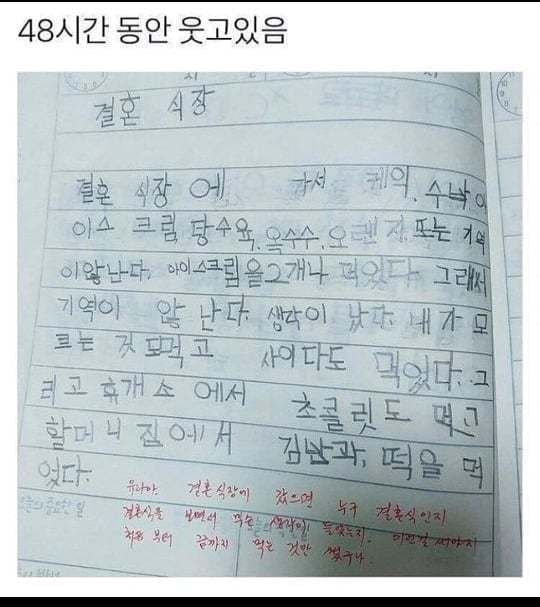 48시간 동안 웃고있음
결혼 식장
결혼 식장에, 가서 케익, 수박, 아
이스 크림, 탕수육, 옥수수, 오랜지, 또는 기역
이않난다. 아이스크림을 2개나 먹었다. 그래서
기역이 않난다. 생각이 났다. 내가 모
르는 것 도먹고 사이다도 먹었다. 그
리고 휴개소에서 초콜릿도 먹고
할머니 집에서 김밥과, 떡을 먹
었다.
결혼식장에 갔으면 누구 결혼식인지
결혼식을 보면서 무슨 생각이 들었는지. 이런걸 써야지
처음부터 끝까지 먹는 것만 썼구나.